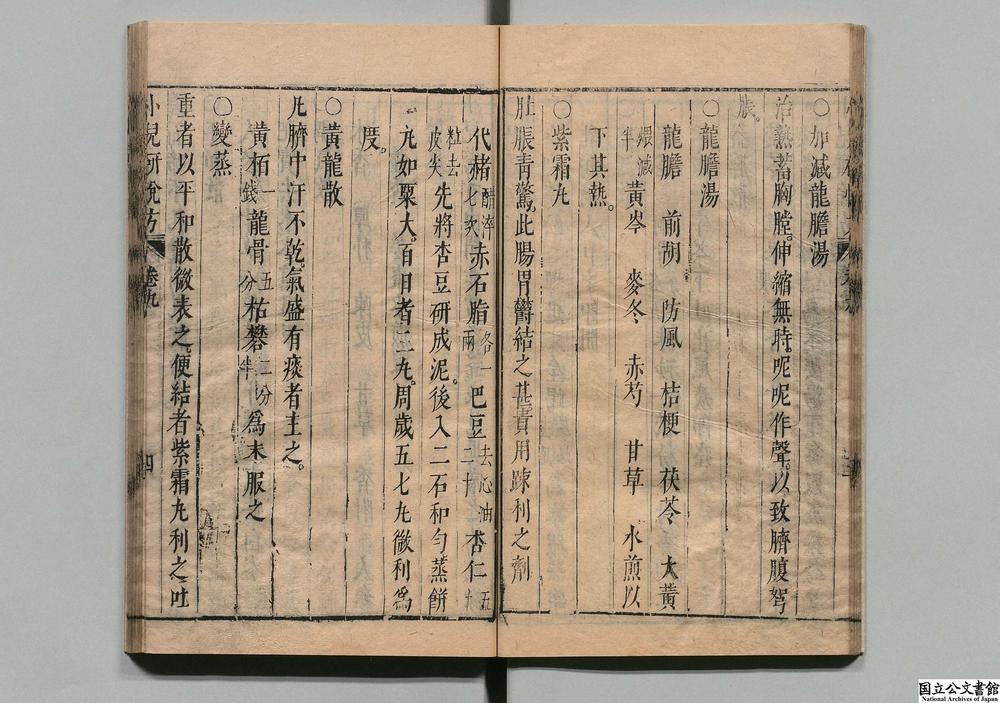 ○加減龍膽湯
治熱蓄胸膛。伸縮無時。呢呢作聲。以致臍腹
脹。
○龍膽湯
龍膽 前胡 防風 桔梗 茯苓 大黃
煨減半 黃岑 麥冬 赤芍 甘草 水煎以
下其熱。
○紫霜九
肚脹青驚。此腸胃欝結之甚。貴用踈利之劑
代赭醋淬七次赤石脂各一兩巴豆去心油二十杏仁五十
粒去皮尖先將杏豆研成泥。後入二石和勻蒸餅
九如粟大。百日者三九。周歲五七九微利爲
度。
○黃龍散
凡臍中汗不乾。氣盛有痰者主之。
黃栢一錢龍骨五分枯礬二分半爲末服之
○變蒸
重者以平和散微表之。便結者紫霜九利之吐
小兒研悅方 卷九 四
国立公文書館
National Archives of Japan